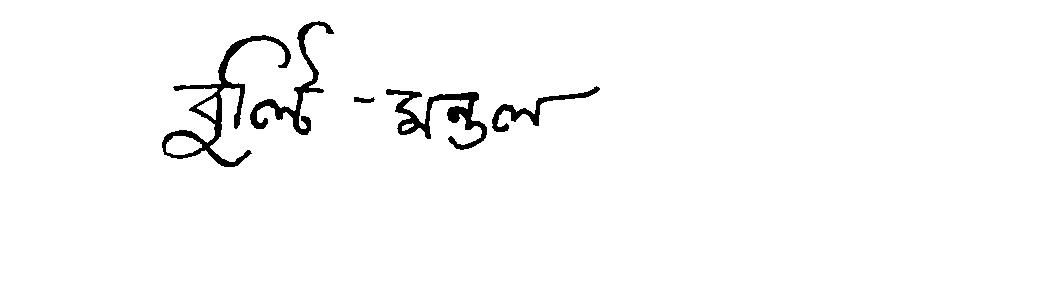 বুল্টি - মন্ডল